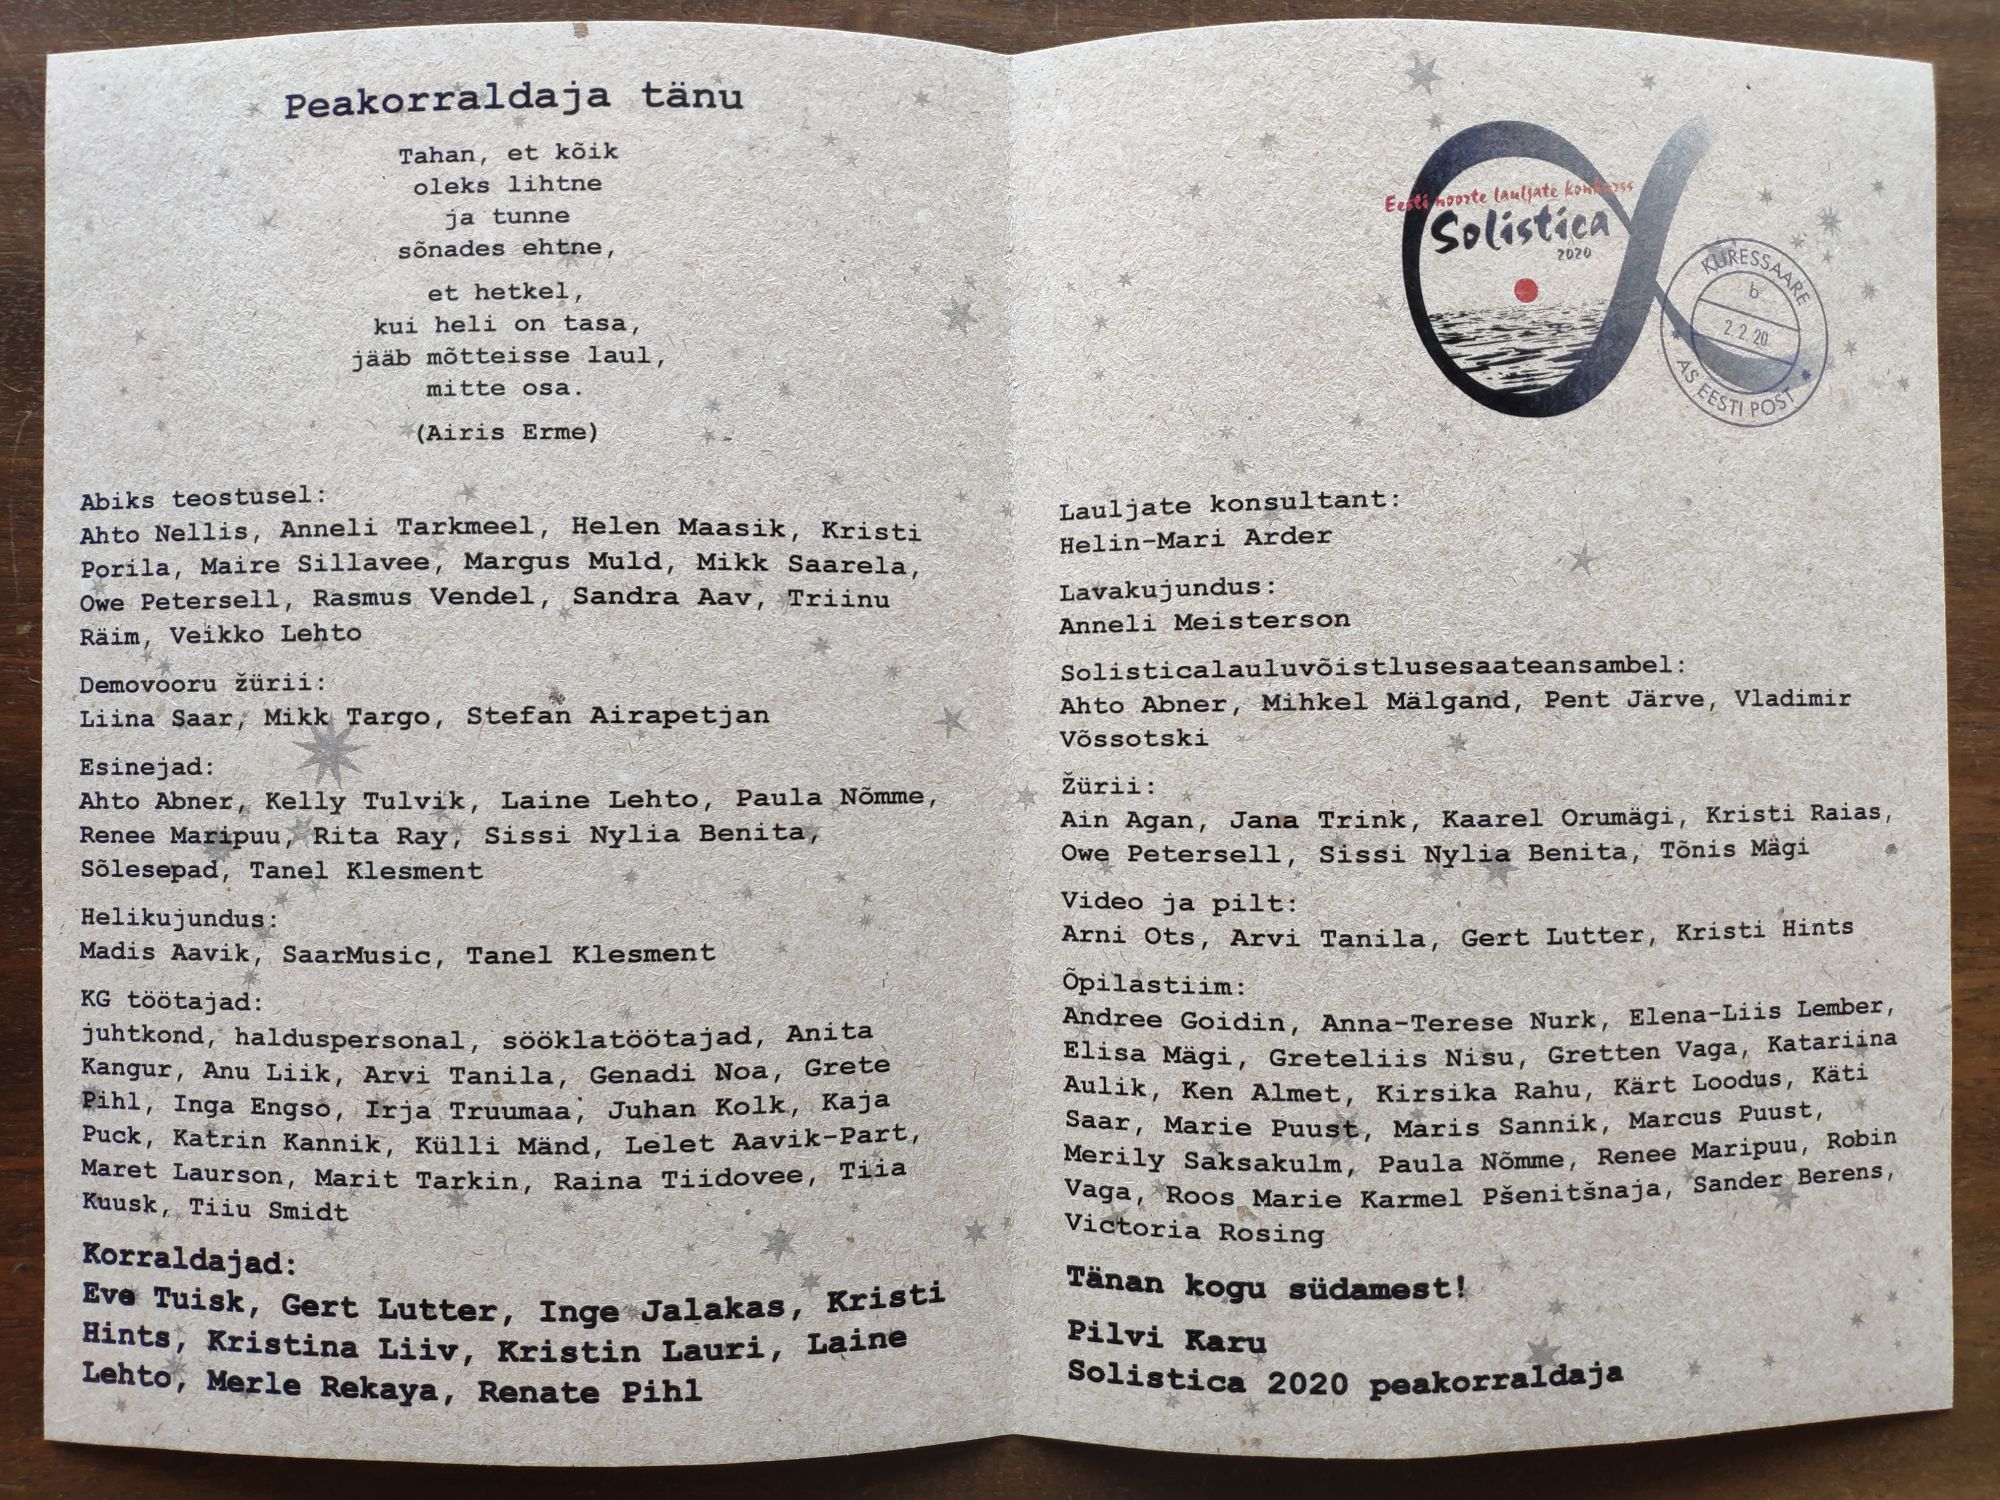 Peakorraldaja tänu
Tahan, et kõik
oleks lihtne
ja tunne
sõnades ehtne,
et hetkel,
kui heli on tasa,
jääb mõtteisse laul,
mitte osa.
(Airis Erme)
Abiks teostusel:
Ahto Nellis, Anneli Tarkmeel, Helen Maasik, Kristi
Porila, Maire Sillavee, Margus Muld, Mikk Saarela,
Owe Petersell, Rasmus Vendel, Sandra Aav, Triinu
Räim, Veikko Lehto
Demovooru žürii:
Liina Saar, Mikk Targo, Stefan Airapetjan
Esinejad:
Ahto Abner, Kelly Tulvik, Laine Lehto, Paula Nõmme,
Renee Maripuu, Rita Ray, Sissi Nylia Benita,
Sõlesepad, Tanel Klesment
Helikujundus:
Madis Aavik, SaarMusic, Tanel Klesment
KG töötajad:
juhtkond, halduspersonal, sööklatöötajad, Anita
Kangur, Anu Liik, Arvi Tanila, Genadi Noa, Grete
Pihl, Inga Engso, Irja Truumaa, Juhan Kolk, Kaja
Puck, Katrin Kannik, Külli Mänd, Lelet Aavik-Part,
Maret Laurson, Marit Tarkin, Raina Tiidovee, Tiia
Kuusk, Tiiu Smidt
Korraldajad:
Eve Tuisk, Gert Lutter, Inge Jalakas, Kristi
Hints, Kristina Liiv, Kristin Lauri, Laine
Lehto, Merle Rekaya, Renate Pihl
Eesti noorte lauljate konkurss
Solistica
2020
KURESSAARE
b
2.2.20
AS EESTI POST
Lauljate konsultant:
Helin-Mari Arder
Lavakujundus:
Anneli Meisterson
Solisticalauluvõistlusesaateansambel:
Ahto Abner, Mihkel Mälgand, Pent Järve, Vladimir
Võssotski
Žürii:
Ain Agan, Jana Trink, Kaarel Orumägi, Kristi Raias,
Owe Petersell, Sissi Nylia Benita, Tõnis Mägi
Video ja pilt:
Arni Ots, Arvi Tanila, Gert Lutter, Kristi Hints
Õpilastiim:
Andree Goidin, Anna-Terese Nurk, Elena-Liis Lember,
Elisa Mägi, Greteliis Nisu, Gretten Vaga, Katariina
Aulik, Ken Almet, Kirsika Rahu, Kärt Loodus, Käti
Saar, Marie Puust, Maris Sannik, Marcus Puust,
Merily Saksakulm, Paula Nõmme, Renee Maripuu, Robin
Vaga, Roos Marie Karmel Pšenitšnaja, Sander Berens,
Victoria Rosing
Tänan kogu südamest!
Pilvi Karu
Solistica 2020 peakorraldaja